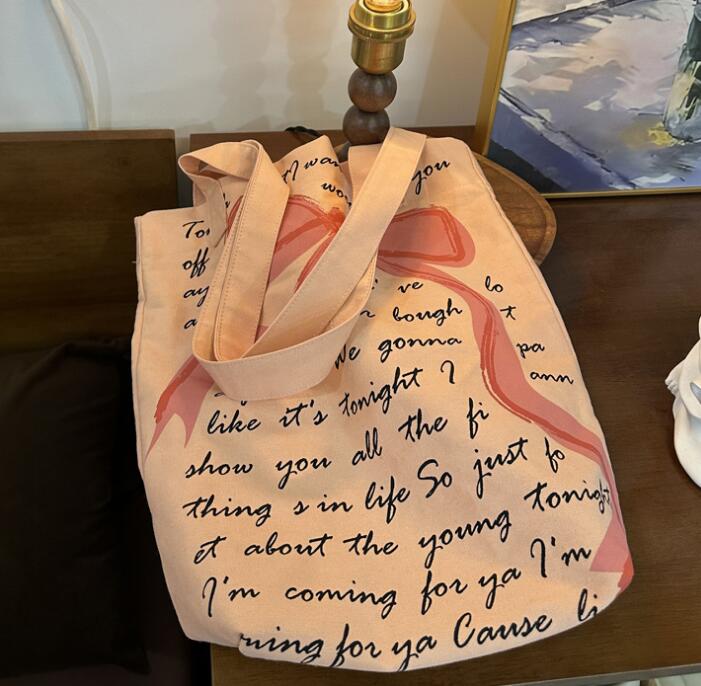 I wa you
off
ve lo
bough t
we gonna pa
ann
like it's tonight I
show you all the fi
thing s in life So just fo
et about the young tonight
I'm coming for ya I'm
ning for ya Cause li